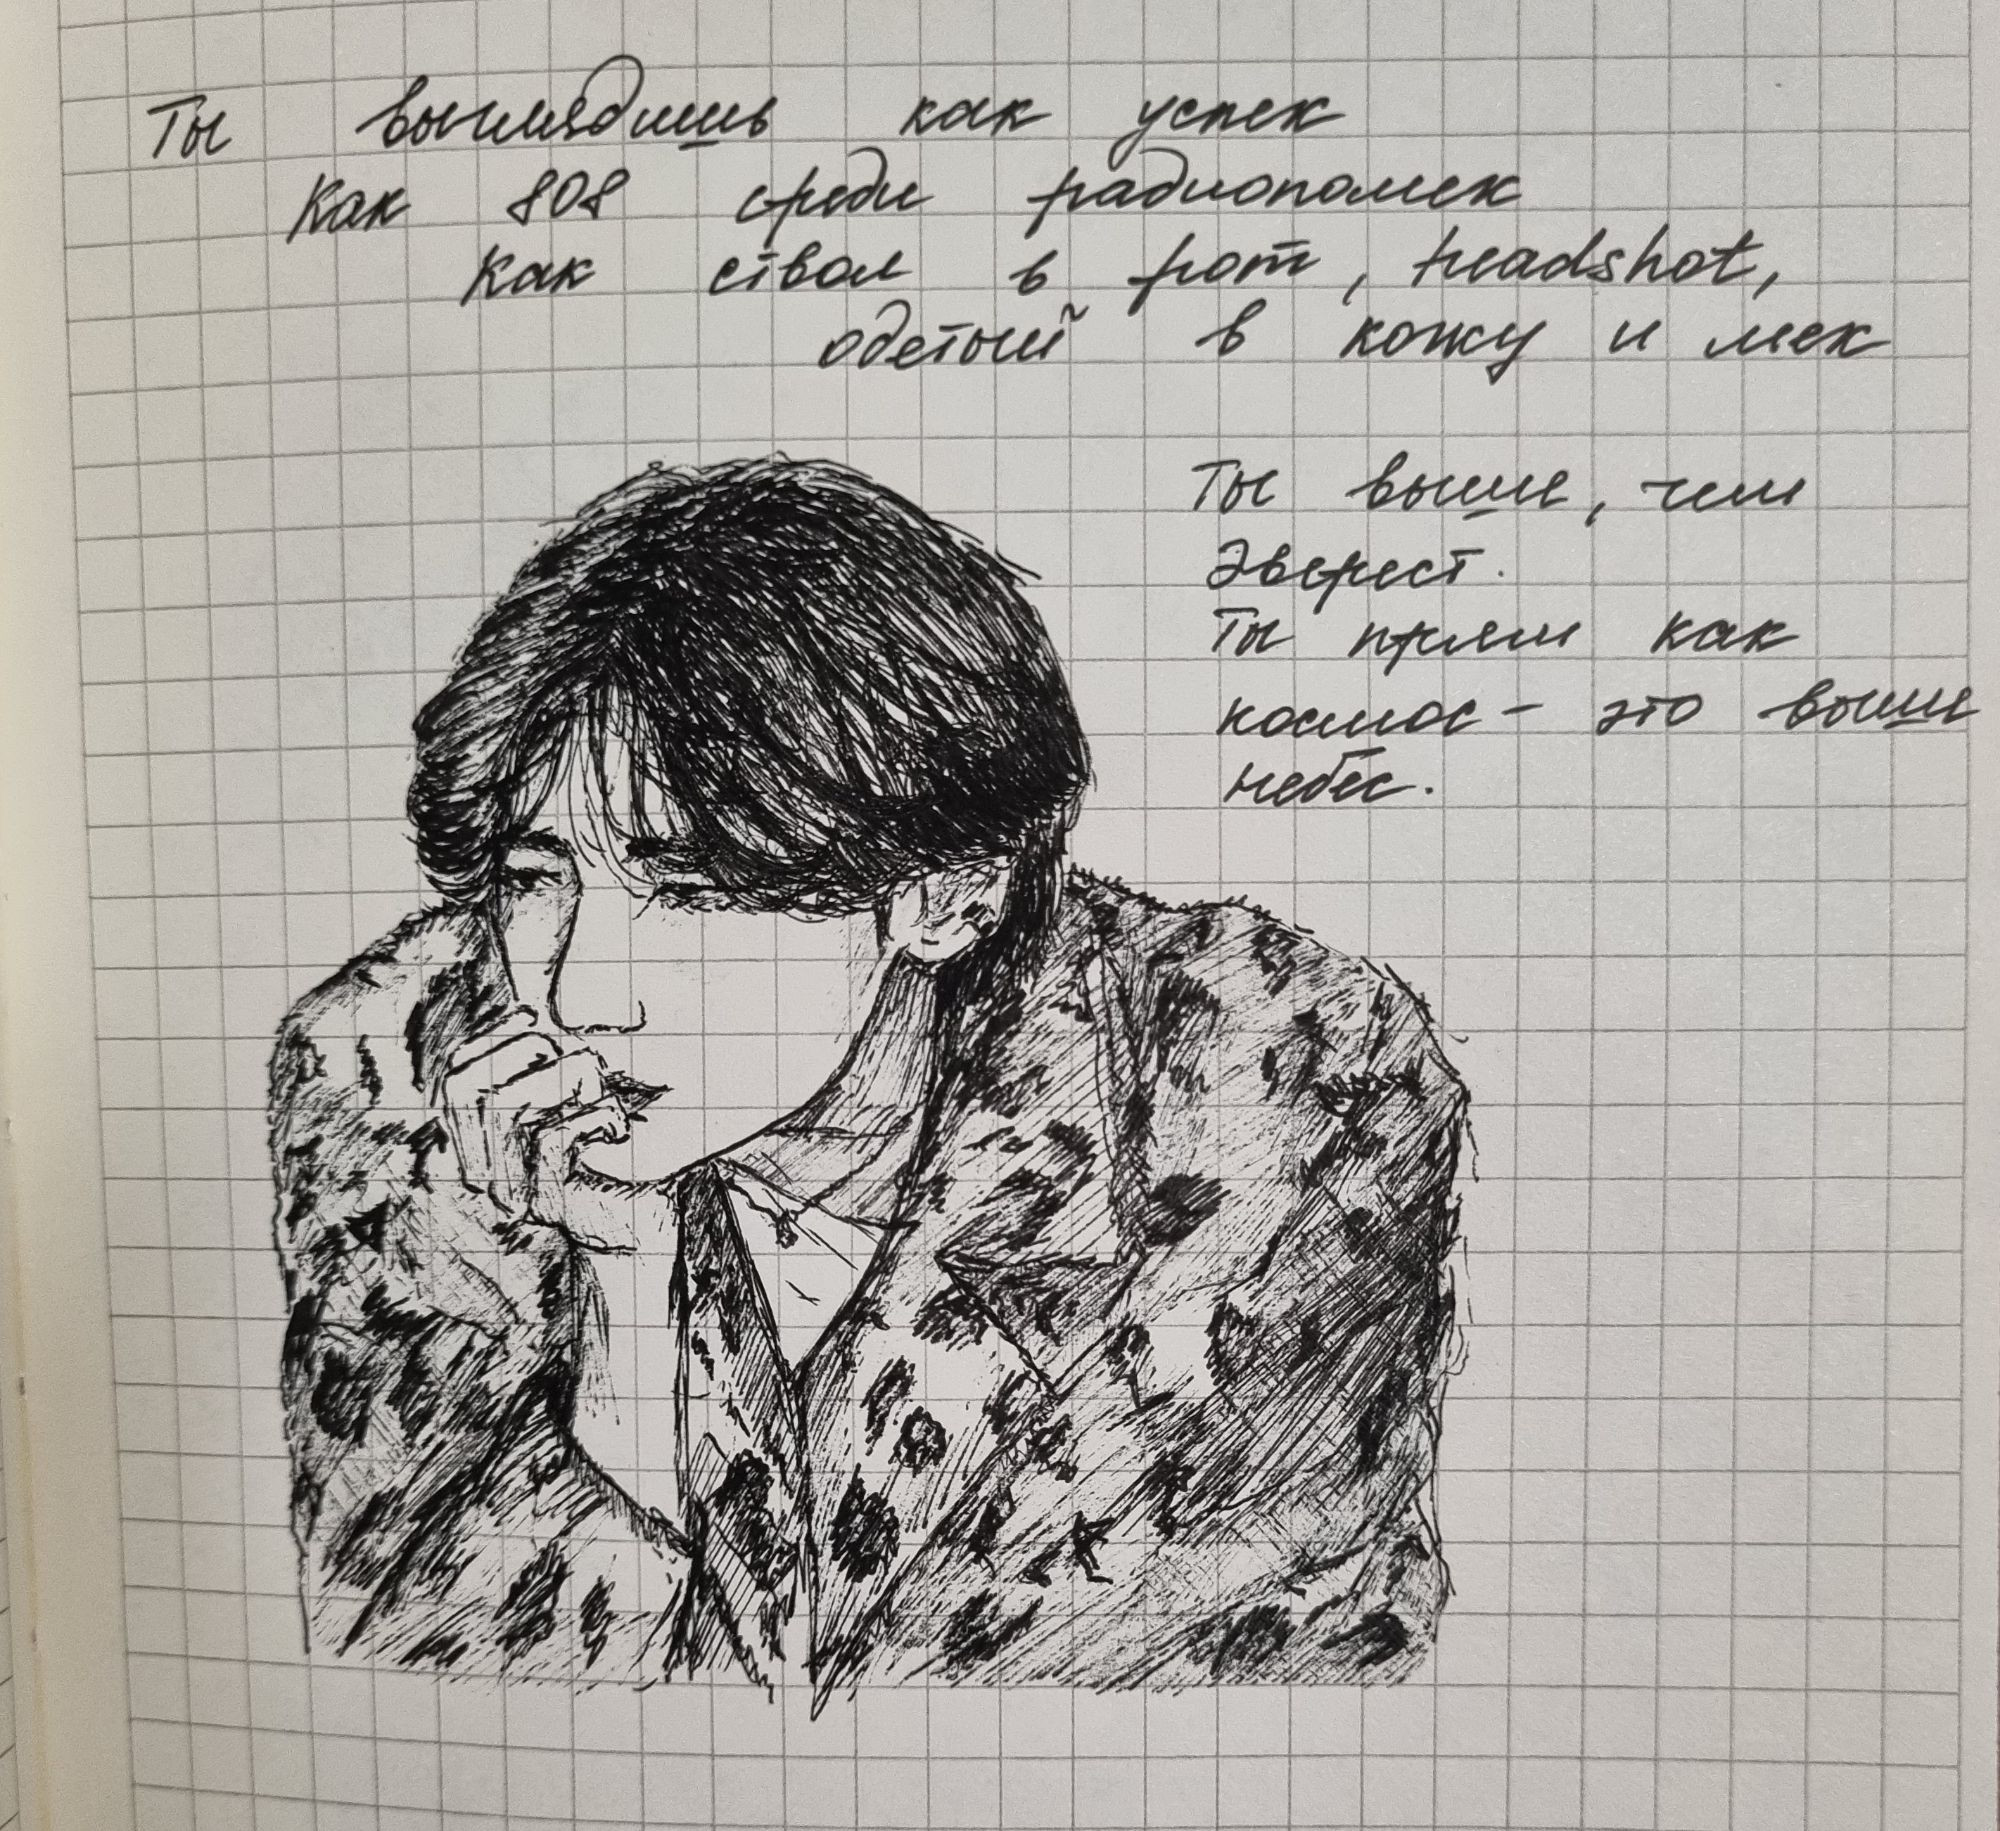 Ты выглядишь как успех
Как 808 среди радиопомех
Как ствол в рот, headshot,
одетый в кожу и мех
Ты выше, чем
Эверест.
Ты прям как
космос - это выше
небес.